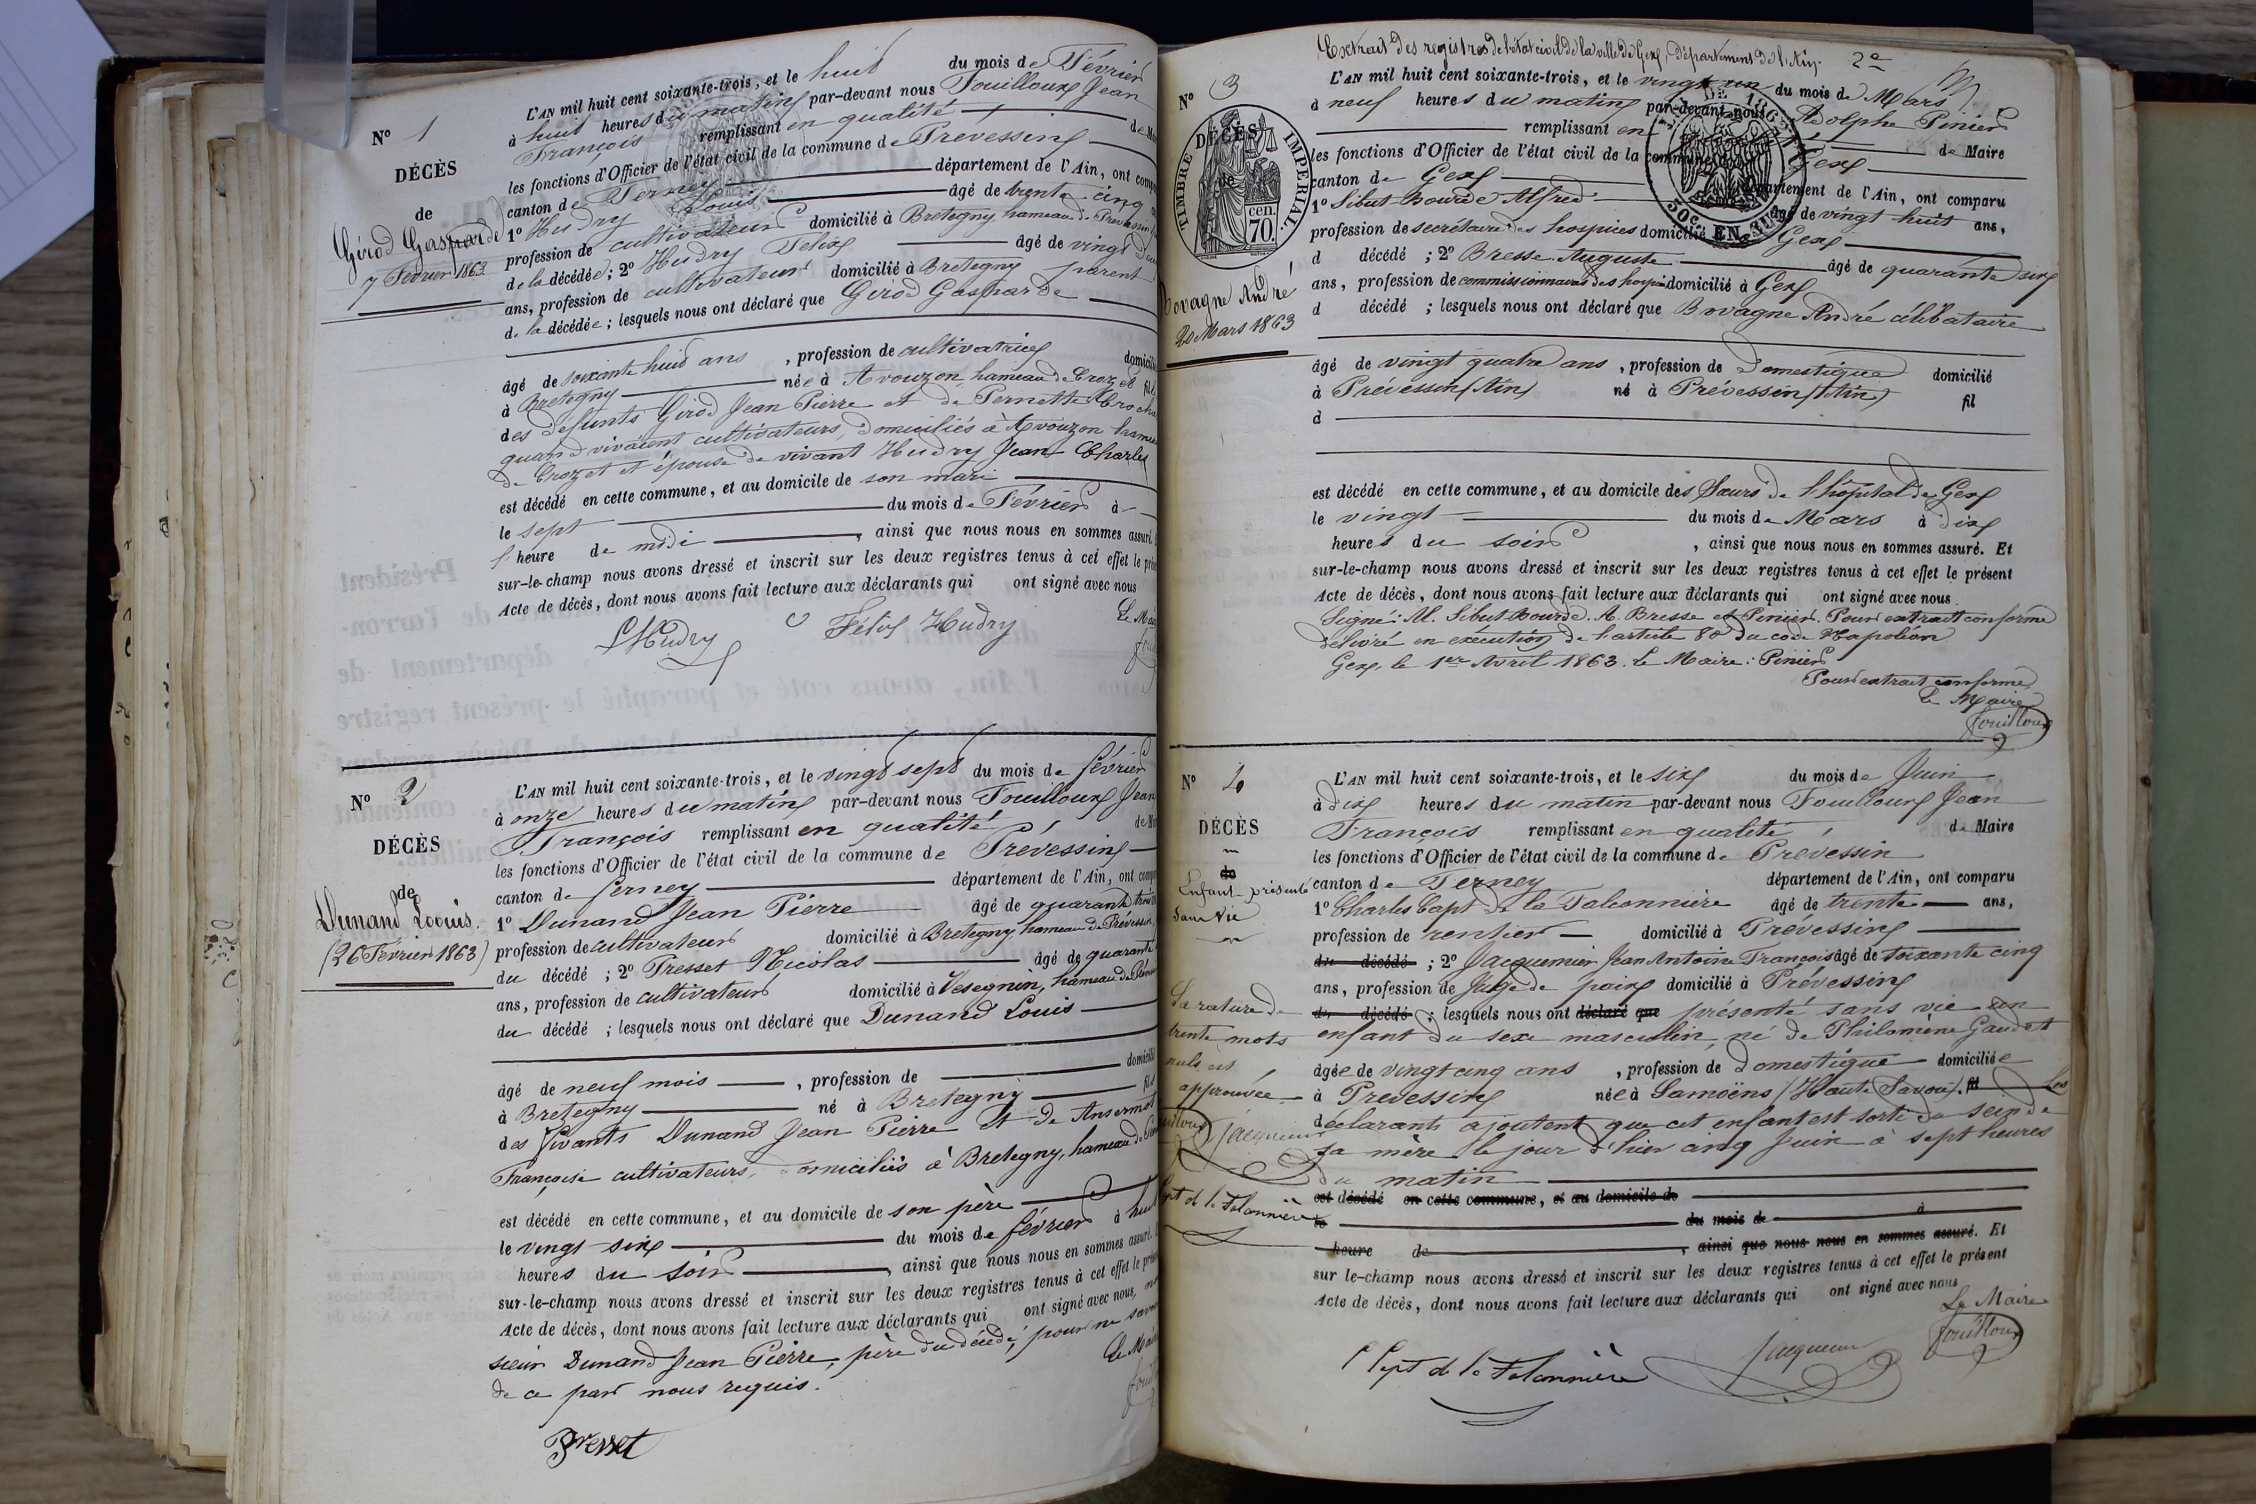 N° 1
DÉCÈS
de
Girod Gasparde
7 Février 1863
L'AN mil huit cent soixante-trois, et le huit du mois de Février
à huit heures du matin par-devant nous Fouilloux Jean
François remplissant en qualité de
les fonctions d'Officier de l'état civil de la commune de Prevessin
canton de Ferney département de l'Ain, ont
1° Hudry Louis âgé de trente cinq
profession de cultivateur domicilié à Bretegny hameau de
de la décédée ; 2° Hudry Félix âgé de vingt
ans, profession de cultivateur domicilié à Bretegny parent
de la décédée ; lesquels nous ont déclaré que Girod Gasparde
âgé de soixante huit ans , profession de cultivatrice
à Bretegny née à Avouzon, hameau de Crozet
des defunts Girod Jean Pierre et de Pernette
quand vivaient cultivateurs, domiciliés à Avouzon
de Crozet et épouse de vivant Hudry Jean Charles
est décédé en cette commune, et au domicile de son mari
le sept du mois de Février à
heure de midi , ainsi que nous nous en sommes
sur-le-champ nous avons dressé et inscrit sur les deux registres tenus à cet effet le
Acte de décès, dont nous avons fait lecture aux déclarants qui ont signé avec nous
Le
LHudry Félix Hudry
N° 2
DÉCÈS
de
Dunand Louis.
(26 Février 1863)
L'AN mil huit cent soixante-trois, et le vingt sept du mois de février
à onze heures du matin par-devant nous Fouilloux Jean
François remplissant en qualité de
les fonctions d'Officier de l'état civil de la commune de Prévessin
canton de ferney département de l'Ain, ont
1° Dunand Jean Pierre âgé de quarante
profession de cultivateur domicilié à Bretegny, hameau de Prévessin,
du décédé ; 2° Presset Nicolas âgé de quarante
ans, profession de cultivateur domicilié à Vesegnin, hameau de
du décédé ; lesquels nous ont déclaré que Dunand Louis
âgé de neuf mois , profession de
à Bretegny né à Bretegny fils
des Vivants Dunand Jean Pierre et de Ansermet
Françoise cultivateurs, domiciliés à Bretegny, hameau de
est décédé en cette commune, et au domicile de son père
le vingt-six du mois de février à
heures du soir , ainsi que nous nous en sommes assuré.
sur-le-champ nous avons dressé et inscrit sur les deux registres tenus à cet effet le
Acte de décès, dont nous avons fait lecture aux déclarants qui ont signé avec nous,
sieur Dunand Jean Pierre, père du décédé, pour ne
de ce par nous requis.
Le
Presset
Extrait des registres de l'état civil de la ville de Gex, département de l'Ain. 2e
N° 3
DÉCÈS
de
TIMBRE IMPÉRIAL.
cen.
70.
Bovagne André
20 Mars 1863
L'AN mil huit cent soixante-trois, et le vingt un du mois de Mars
à neuf heures du matin par-devant nous Adolphe Pinier
remplissant en de Maire
les fonctions d'Officier de l'état civil de la commune de Gex
canton de Gex département de l'Ain, ont comparu
1° Sibut Bourde Alfred âgé de vingt huit ans,
profession de secrétaire des hospices domicilié Gex
d décédé ; 2° Bresse Auguste âgé de quarante six
ans, profession de commissionnaire des domicilié à Gex
d décédé ; lesquels nous ont déclaré que Bovagne André célibataire
âgé de vingt quatre ans , profession de Domestique domicilié
à Prévessin (Ain) né à Prévessin (Ain) fil
d
est décédé en cette commune, et au domicile des Sœurs de l'hôpital de Gex
le vingt du mois de Mars à dix
heures du soir , ainsi que nous nous en sommes assuré. Et
sur-le-champ nous avons dressé et inscrit sur les deux registres tenus à cet effet le présent
Acte de décès, dont nous avons fait lecture aux déclarants qui ont signé avec nous
Signé: M. Sibut Bourde. A. Bresse et Pinier. Pour extrait conforme
délivré en exécution de l'article 80 du code Napoléon
Gex, le 1er Avril 1863. Le Maire: Pinier
Pour extrait conforme
Le Maire
Fouilloux
N° 4
DÉCÈS
de
Enfant présenté
sans vie
La rature de
trente mots
nuls est
approuvée
L'AN mil huit cent soixante-trois, et le six du mois de Juin
à dix heures du matin par-devant nous Fouilloux Jean
François remplissant en qualité de Maire
les fonctions d'Officier de l'état civil de la commune de Prevessin
canton de Ferney département de l'Ain, ont comparu
1° Charles Capt de la Falconnière âgé de trente ans,
profession de rentier domicilié à Prévessin
du décédé ; 2° Jacquemier Jean Antoine François âgé de soixante cinq
ans, profession de Juge de paix domicilié à Prévessin
du décédé ; lesquels nous ont déclaré que présenté sans vie un
enfant du sexe masculin, né de Philomène Gaudet
âgée de vingt cinq ans , profession de domestique domiciliée
à Prevessin née à Samoëns (Haute Savoie). fil Les
déclarants ajoutent que cet enfant est sorti du sein de
sa mère le jour d'hier cinq Juin à sept heures
du matin
est décédé en cette commune, et au domicile de
le du mois de à
heure de , ainsi que nous nous en sommes assuré. Et
sur le-champ nous avons dressé et inscrit sur les deux registres tenus à cet effet le présent
Acte de décès, dont nous avons fait lecture aux déclarants qui ont signé avec nous
Le Maire
Fouilloux